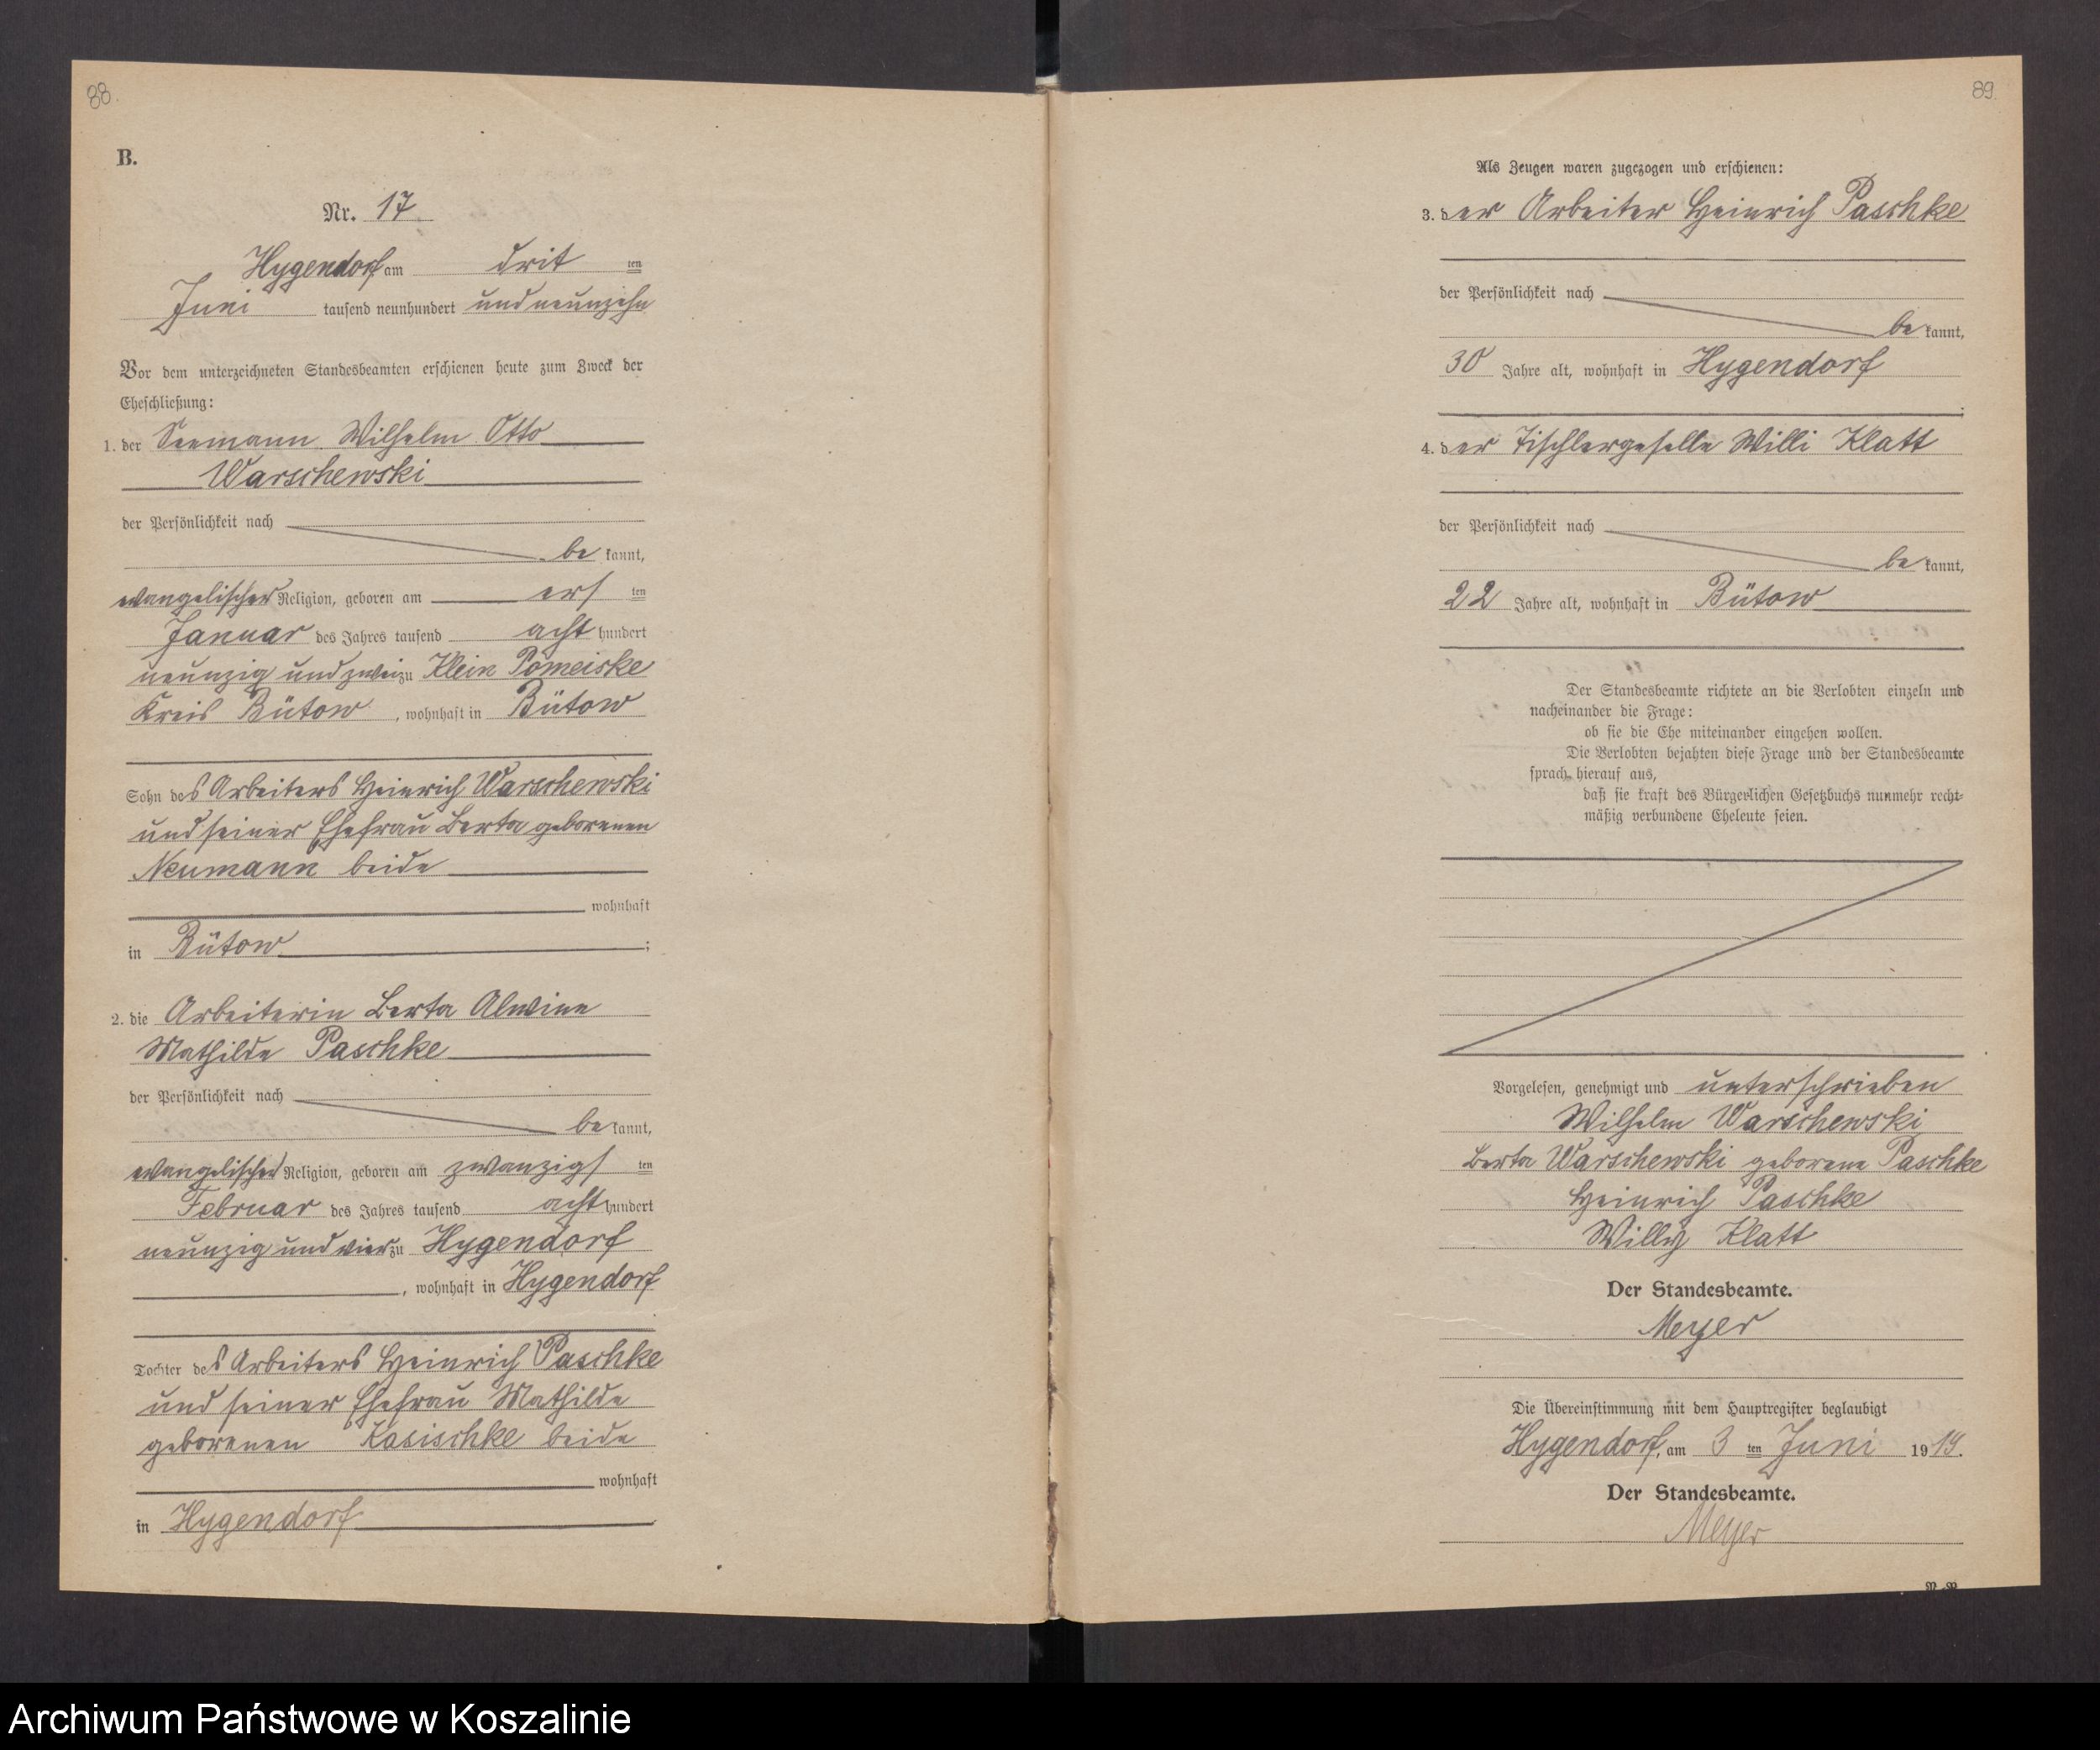 88.
B.
Nr. 17
Hygendorf am drit ten
Juni tausend neunhundert und neunzehn
Vor dem unterzeichneten Standesbeamten erschienen heute zum Zweck der
Eheschließung:
1. der Seemann Wilhelm Otto
Warschewski
der Persönlichkeit nach
be kannt,
evangelischer Religion, geboren am ers ten
Januar des Jahres tausend acht hundert
neunzig und zwei zu Klein Pomeiske
Kreis Bütow, wohnhaft in Bütow
Sohn des Arbeiters Heinrich Warschewski
und seiner Ehefrau Berta geborenen
Neumann beide
wohnhaft
in Bütow ;
2. die Arbeiterin Berta Alwine
Mathilde Paschke
der Persönlichkeit nach
be kannt,
evangelischer Religion, geboren am zwanzigs ten
Februar des Jahres tausend acht hundert
neunzig und vier zu Hygendorf
, wohnhaft in Hygendorf
Tochter des Arbeiters Heinrich Paschke
und seiner Ehefrau Mathilde
geborenen Kasischke beide
wohnhaft
in Hygendorf
89.
Als Zeugen waren zugezogen und erschienen:
3. der Arbeiter Heinrich Paschke
der Persönlichkeit nach
be kannt,
30 Jahre alt, wohnhaft in Hygendorf
4. der Tischlergeselle Willi Klatt
der Persönlichkeit nach
be kannt,
22 Jahre alt, wohnhaft in Bütow
Der Standesbeamte richtete an die Verlobten einzeln und
nacheinander die Frage:
ob sie die Ehe miteinander eingehen wollen.
Die Verlobten bejahten diese Frage und der Standesbeamte
sprach hierauf aus,
daß sie kraft des Bürgerlichen Gesetzbuchs nunmehr recht-
mäßig verbundene Eheleute seien.
Vorgelesen, genehmigt und unterschrieben
Wilhelm Warschewski
Berta Warschewski geborene Paschke
Heinrich Paschke
Willy Klatt
Der Standesbeamte.
Meyer
Die Übereinstimmung mit dem Hauptregister beglaubigt
Hygendorf, am 3 ten Juni 1919.
Der Standesbeamte.
Meyer
Archiwum Państwowe w Koszalinie